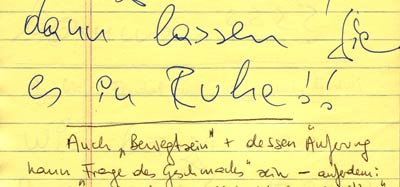 dann lassen Sie
es in Ruhe!!
Auch „Bewegtsein" + dessen Äußerung
kann „Frage des Geschmacks" sein – außerdem: